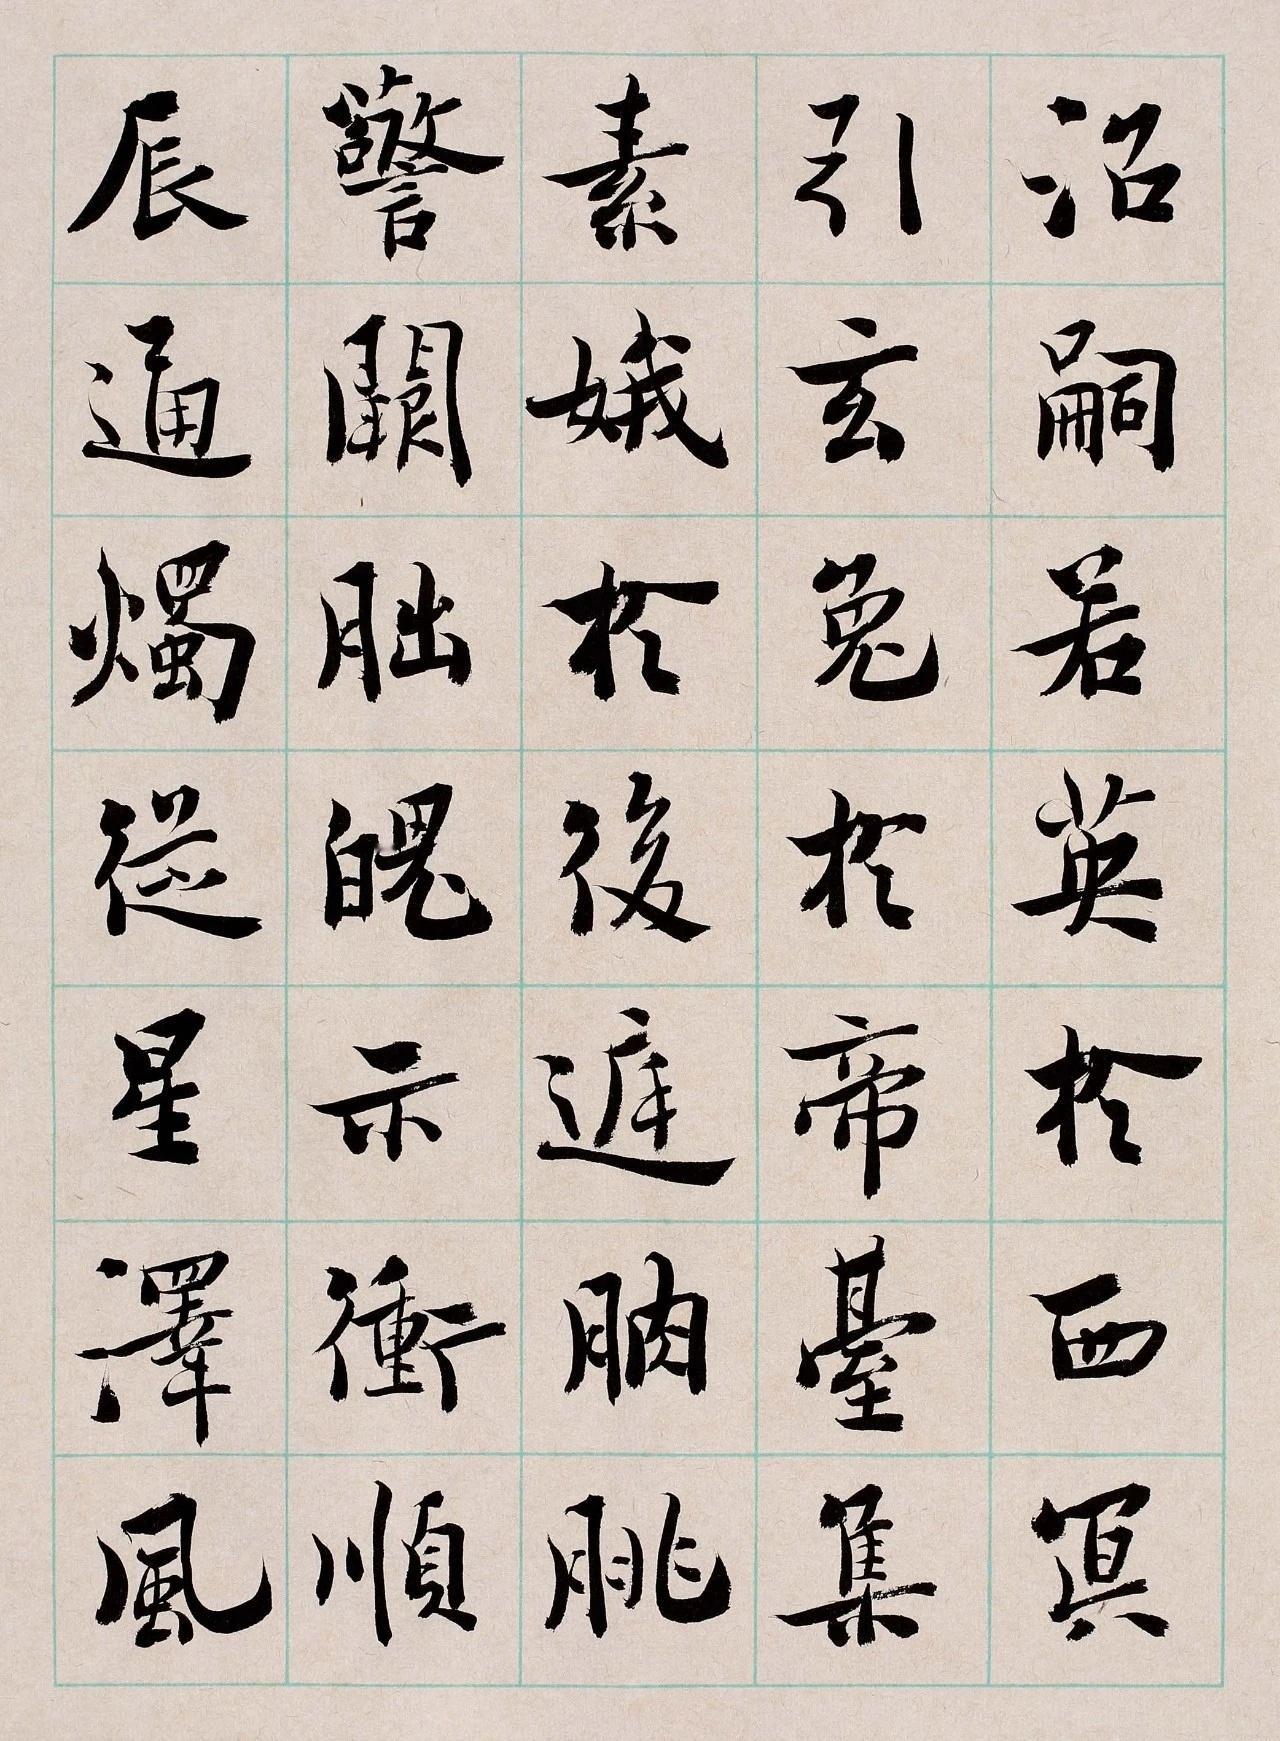 沼嗣若英於西冥
引玄兔於帝臺集
素娥於後庭朒朓
警闕朏魄示衝順
辰通燭從星澤風